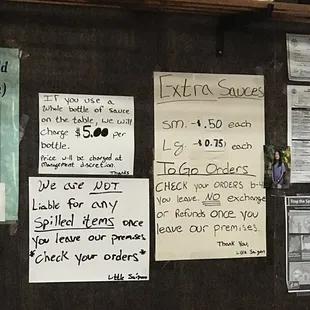 If you use a
whole bottle of sauce
on the table, we will
charge $5.00 per
bottle.
Price will be charged at
Management discretion.
Thanks
We are NOT
Liable for any
Spilled items once
you leave our premises
*Check your orders*
Little Saigon
Extra Sauces
Sm. - $.50 each
Lg. - 0.75¢ each
To Go Orders
CHECK your ORDERS b-4
you leave. NO exchange
or Refunds once you
leave our premises.
Thank You,
Little Saigon